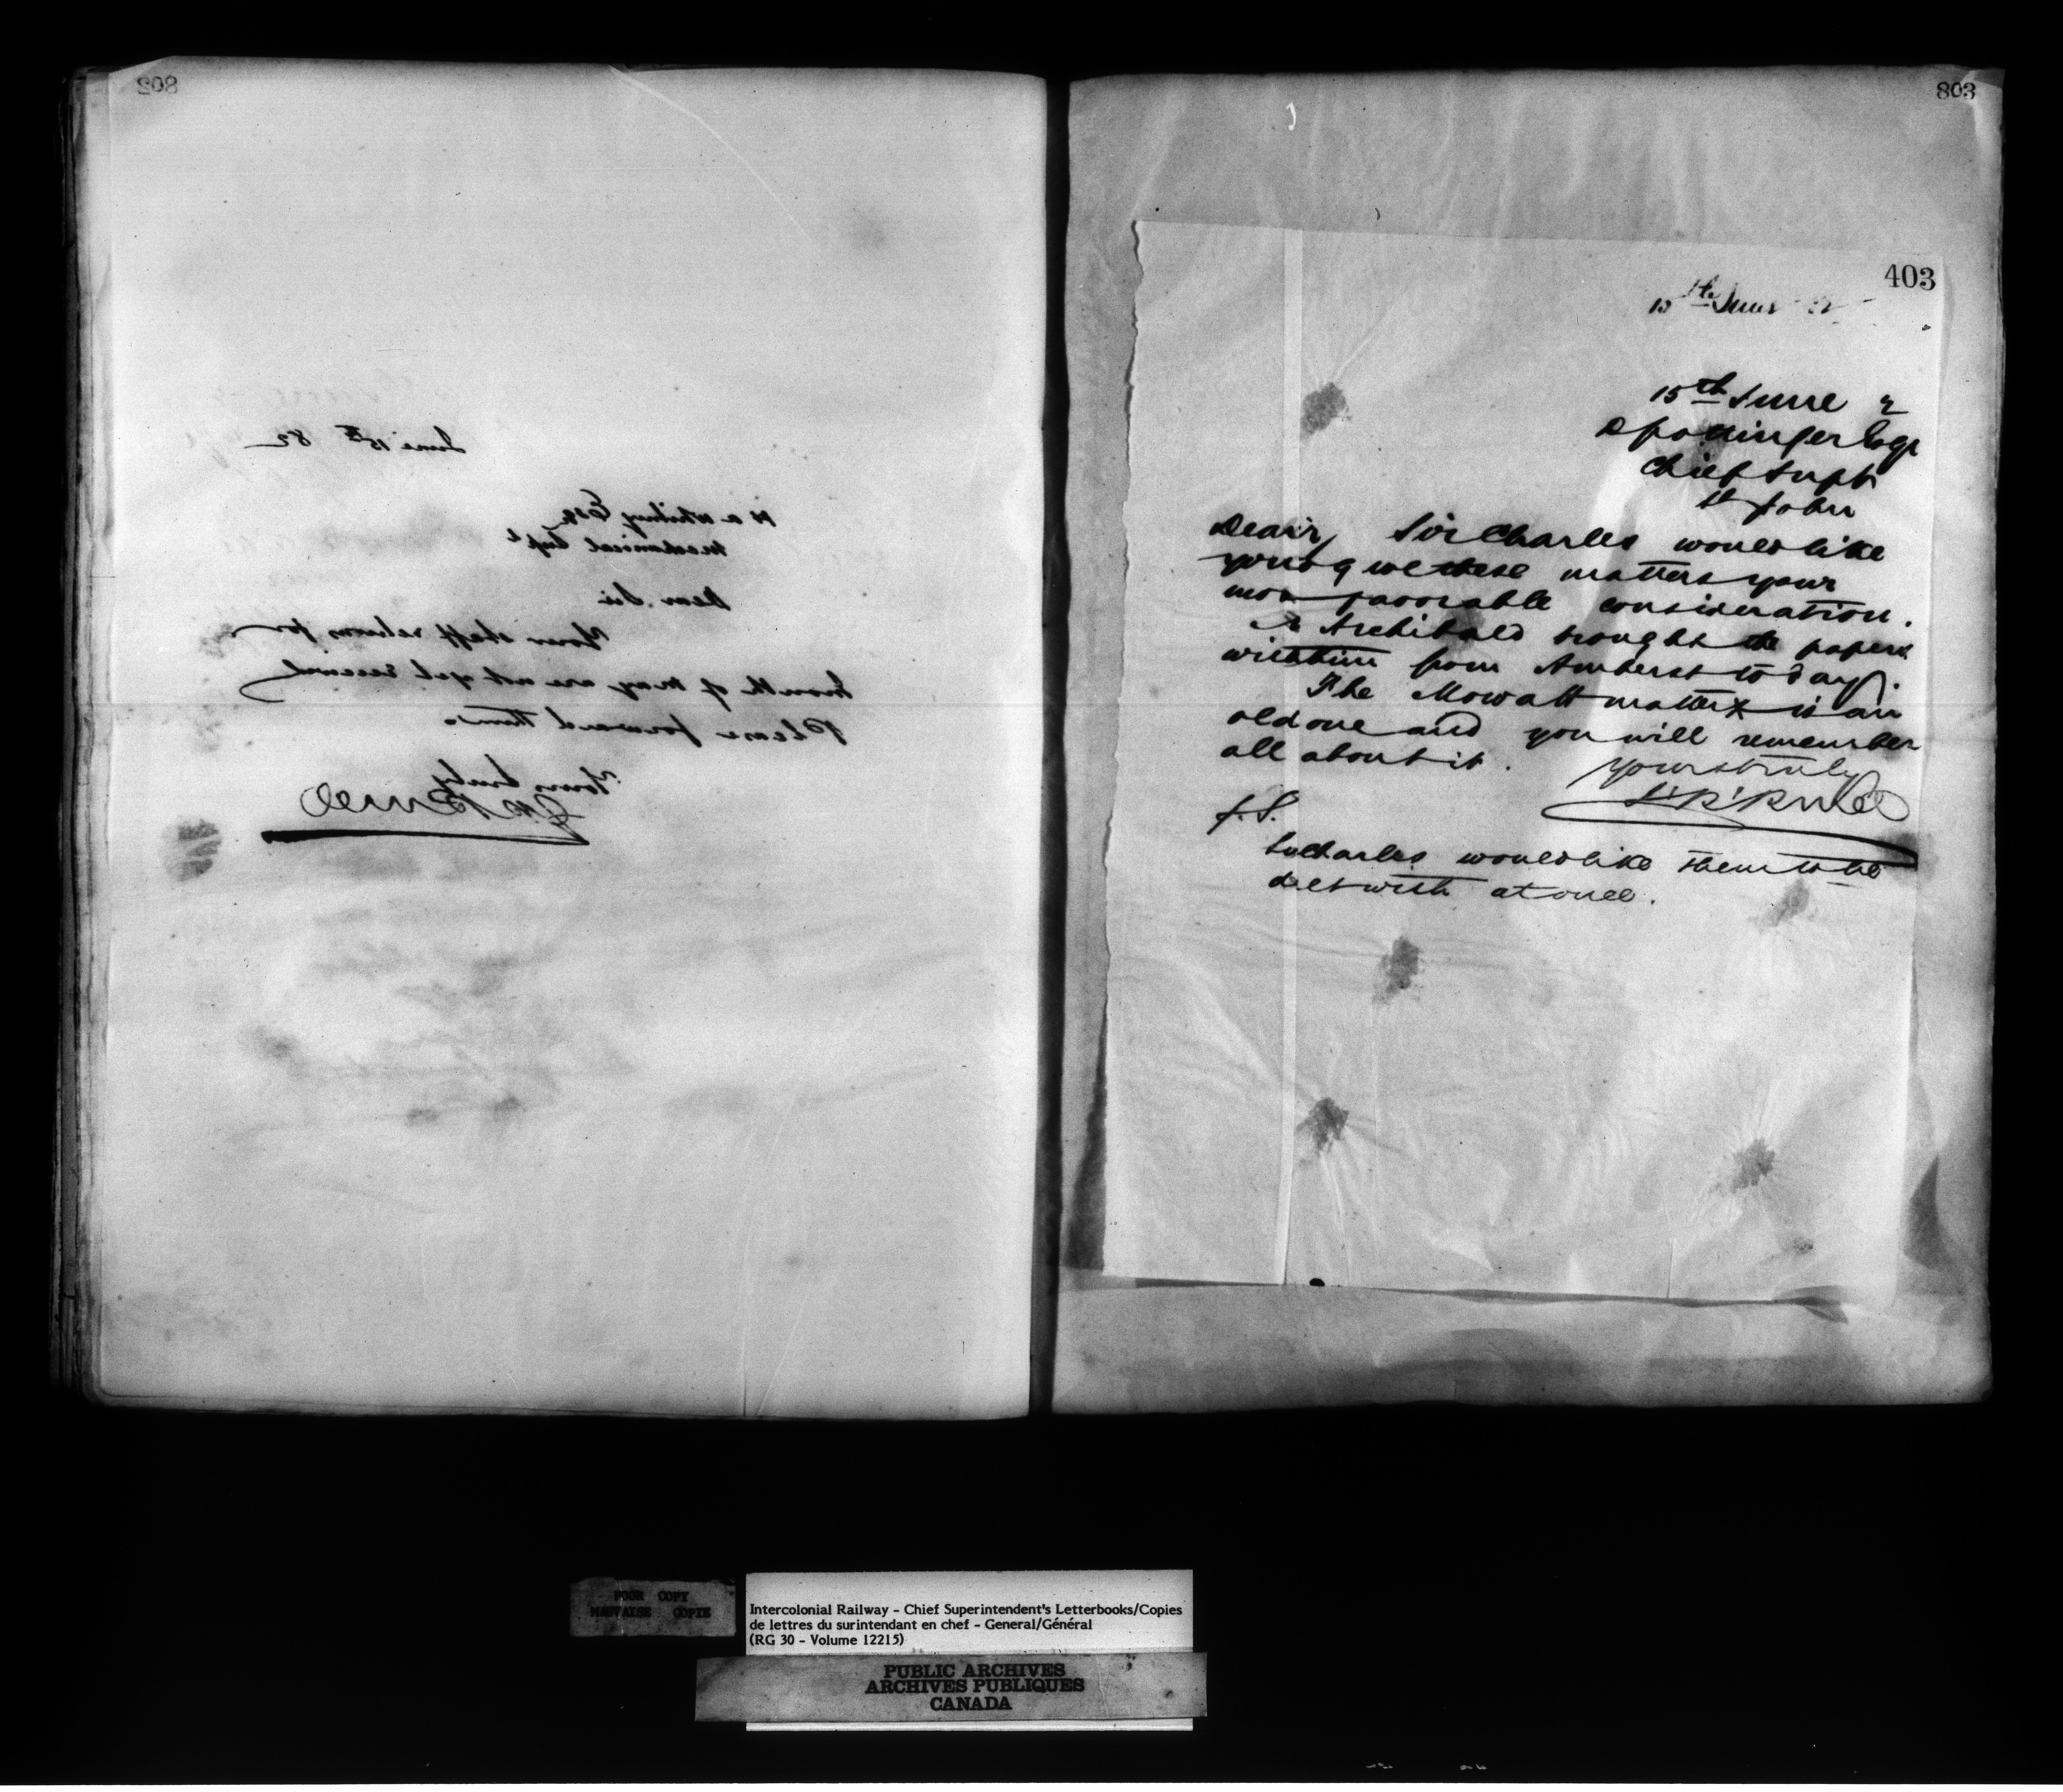 802
June 15th 82
H A Whitney Esq
Mechanical Supt
Dear Sir
Your staff returns for
month of May are not yet received
Please forward them.
Yours truly
803
403
15th June
15th June 2
D Pottinger Esqr
Chief Supt
St John
Dear Sir, Sir Charles would like
you to give these matters your
most favorable consideration.
Mr Archibald brought the papers
with him from Amherst to day.
The Mowatt matter is an
old one and you will remember
all about it.
Yours truly
P.S.
Sir Charles would like them to be
delt with at once.
POOR COPY
MAUVAISE COPIE
Intercolonial Railway - Chief Superintendent's Letterbooks/Copies
de lettres du surintendant en chef - General/Général
(RG 30 - Volume 12215)
PUBLIC ARCHIVES
ARCHIVES PUBLIQUES
CANADA